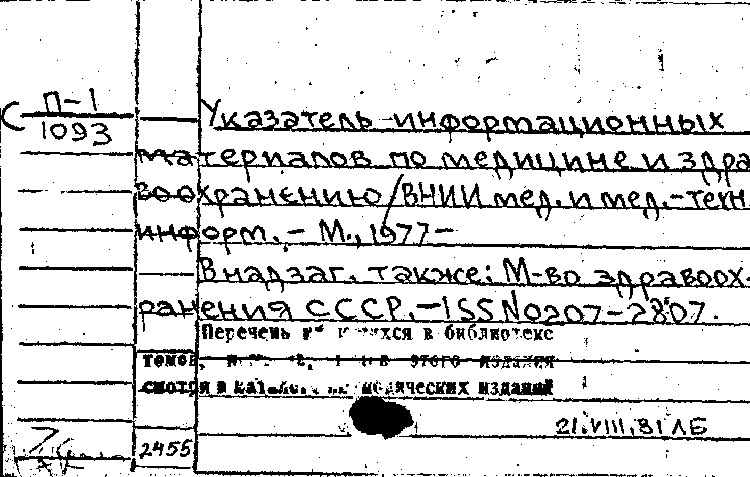 С П-1
1093
Указатель информационных
материалов по медицине и здра
воохранению/ВНИИ мед. и мед.-техн.
информ. - М., 1977-
В надзаг. также: М-во здравоох-
ранения СССР. - ISSN 0207-2807.
Перечень в библиотеке
томов, этого издания
смотри в изданий
21.VIII.81 ЛБ
2455